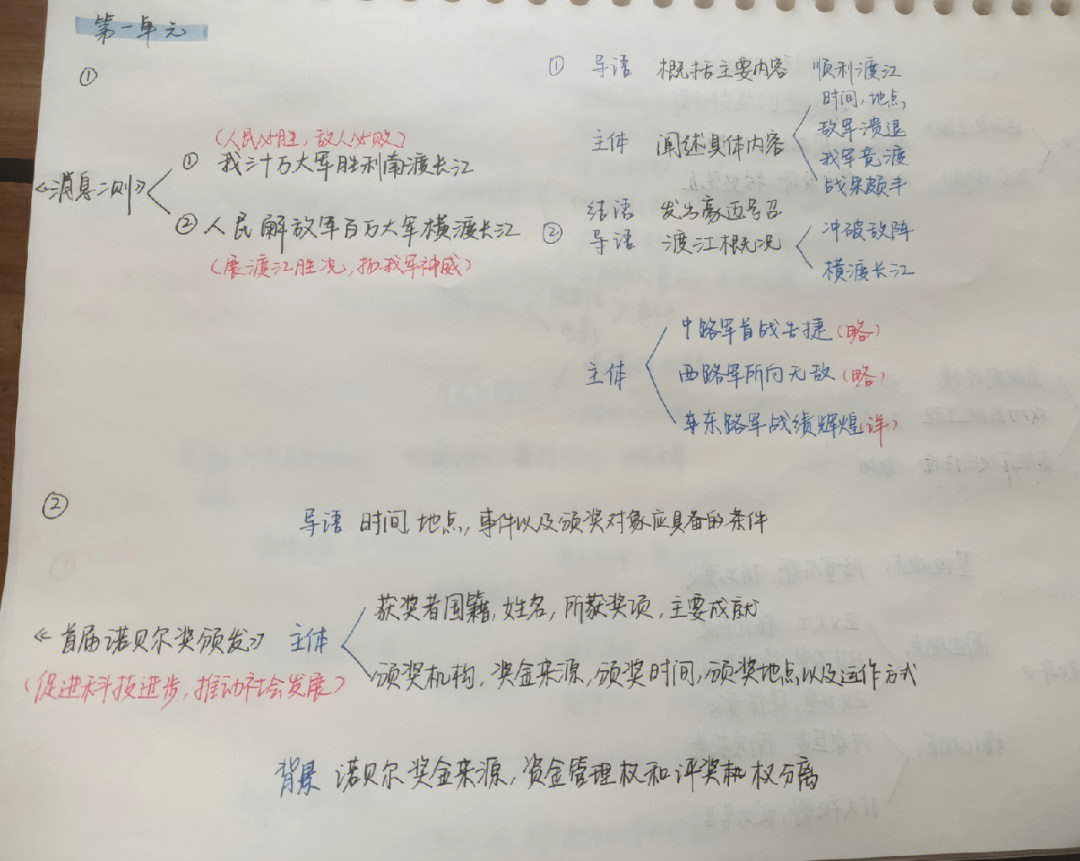 第一单元
①
① 导语 概括主要内容 顺利渡江
主体 阐述具体内容
时间,地点,
敌军溃退
我军竞渡
战果颇丰
结语 发出豪迈号召
《消息二则》
(人民必胜,敌人必败)
① 我三十万大军胜利南渡长江
② 人民解放军百万大军横渡长江
(展渡江胜况,扬我军神威)
② 导语 渡江概况
冲破敌阵
横渡长江
主体
中路军首战告捷(略)
西路军所向无敌(略)
东路军战绩辉煌(详)
②
导语 时间,地点,事件以及颁奖对象应具备的条件
《首届诺贝尔奖颁发》 主体
(促进科技进步,推动社会发展)
获奖者国籍,姓名,所获奖项,主要成就
颁奖机构,奖金来源,颁奖时间,颁奖地点以及运作方式
背景 诺贝尔奖金来源,资金管理权和评奖权分离